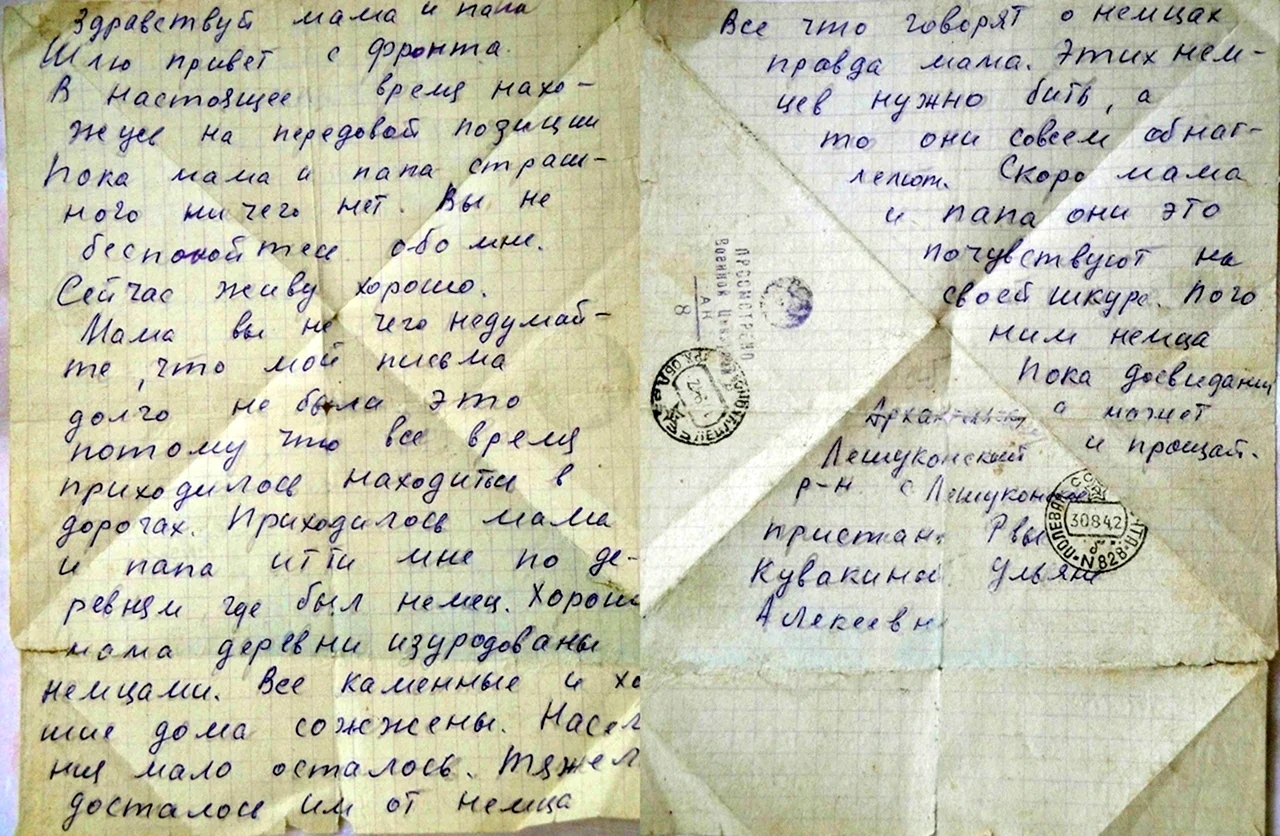 Здравствуй мама и папа
Шлю привет с фронта.
В настоящее время нахо-
жусь на передовой позиции
Пока мама и папа страш-
ного ничего нет. Вы не
беспокойтесь обо мне.
Сейчас живу хорошо.
Мама вы не чего недумай-
те, что мой письма
долго не была это
потому что все время
приходилось находиться в
дорогах. Приходилось мама
и папа итти мне по де-
ревням где был немец. Хорош
мама деревни изуродованы
немцами. Все каменные и хо
шие дома сожжены. Насел
ния мало осталось. Тяжел
досталось им от немца
Все что говорят о немцах
правда мама. Этих нем-
цев нужно бить, а
то они совсем обнаг-
леют. Скоро мама
и папа они это
почувствуют на
своей шкуре. Пого
ним немца
Пока досвидания
а может
и прощай.
Лешуконский
р-н с Лешуконское
пристан
Кувакиной Ульяне
Алексеевн
ПРОСМОТРЕНО
Военной Цензурой
АН
8
ПОЛЕВАЯ ПОЧТ
СССР
30.8.42
N828